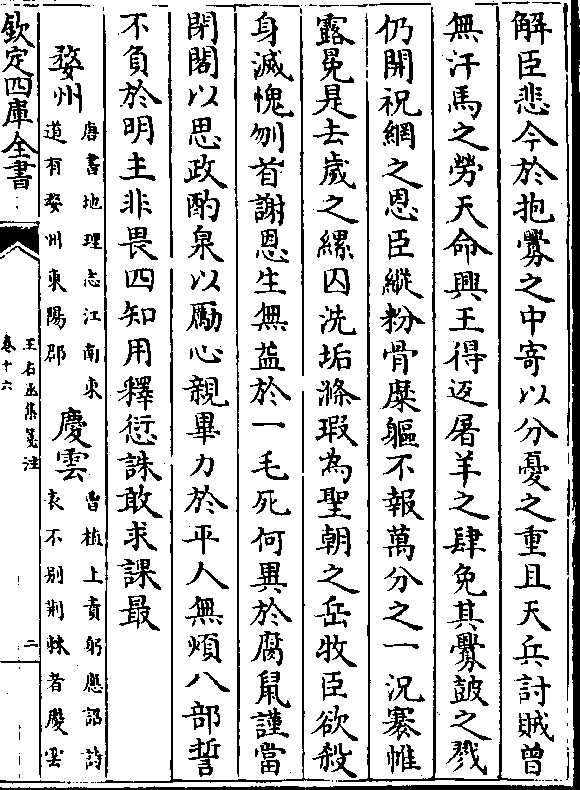 解臣悲今於抱釁之中寄以分憂之重且天兵討賊曾
無汗馬之勞天命興王得返屠羊之肆免其釁鼓之戮
仍開祝網之恩臣縱粉骨糜軀不報萬分之一況褰帷
露冕是去歲之縲囚洗垢滌瑕為聖朝之岳牧臣欲殺
身滅愧刎首謝恩生無益於一毛死何異於腐鼠謹當
閉閤以思政酌泉以勵心親畢力於平人無煩八部誓
不負於明主非畏四知用釋愆誅敢求課最
婺州
唐書地理志江南東
道有婺州東陽郡
慶雲
曹植上責躬應詔詩
表不别荆棘者慶雲
欽定四庫全書
王右丞集箋注
卷十六
二